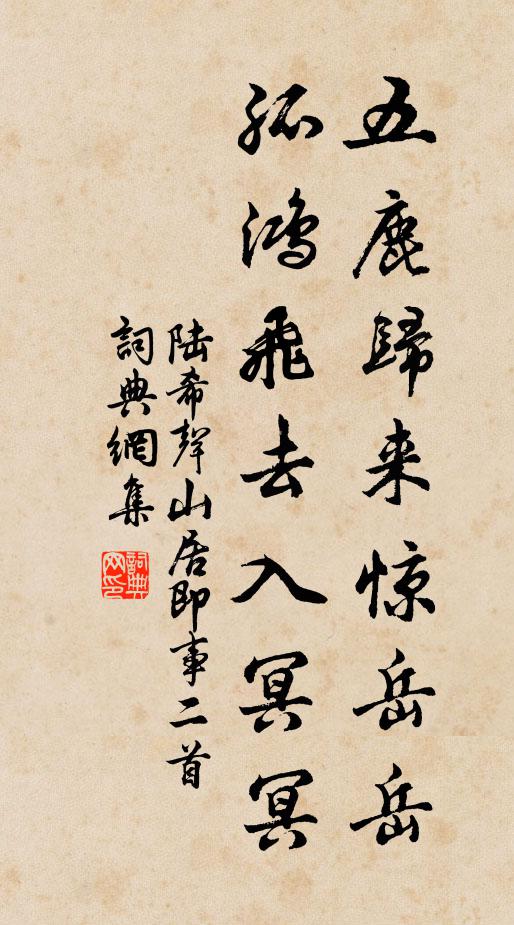 五鹿歸来惊岳岳
孤鴻飛去入冥冥
陆希聲山居即事二首
詞典網集
詞典网印